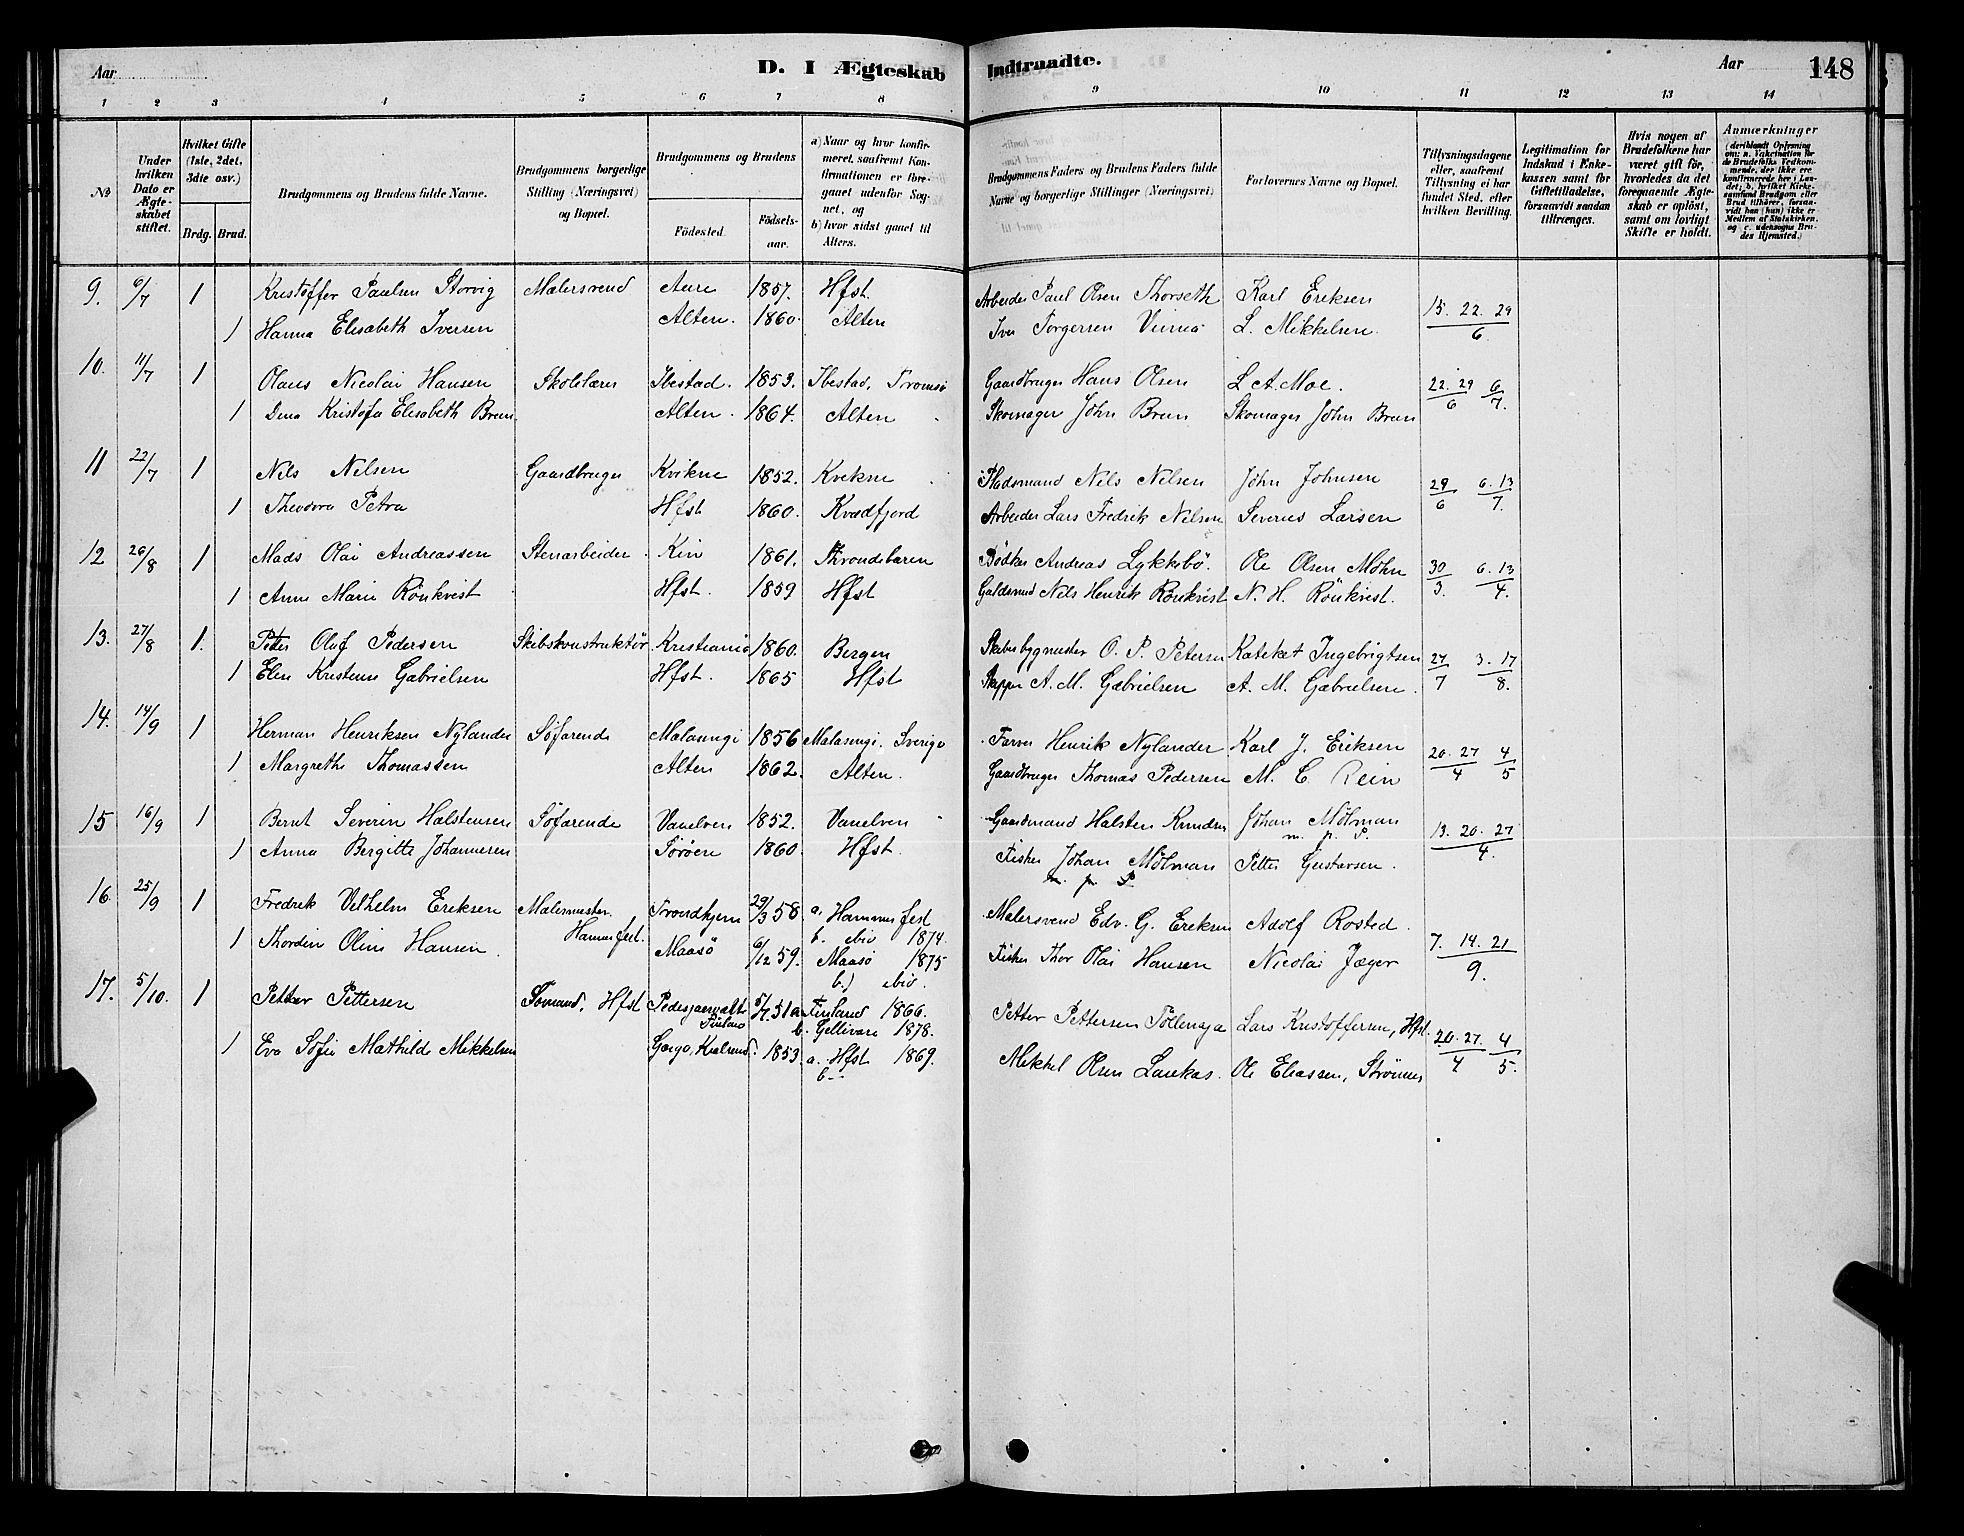 Aar
D. I Ægteskab Indtraadte.
Aar
148
1 2 3 4 5 6 7 8 9 10 11 12 13 14
No
Under hvilken Dato er Ægteskabet stiftet.
Hvilket Gifte (1ste, 2det, 3die osv.)
Brdg. Brud.
Brudgommens og Brudens fulde Navne.
Brudgommens borgerlige Stilling (Næringsvei) og Bopæl.
Brudgommens og Brudens
Födested.
Födsels-aar.
a) Naar og hvor konfirmeret, saafremt Konfirmationen er foregaaet udenfor Sognet, og
b) hvor sidst gaaet til Alters.
Brudgommens Faders og Brudens Faders fulde Navne og borgerlige Stillinger (Næringsvei)
Forlovernes Navne og Bopæl.
Tillysningsdagene eller, saafremt Tillysning ei har fundet Sted, efter hvilken Bevilling.
Legitimation for Indskud i Enkekassen samt for Giftetilladelse, forsaavidt saadan tiltrænges.
Hvis nogen af Brudefolkene har været gift för, hvorledes da det foregaaende Ægteskab er oplöst, samt om lovligt Skifte er holdt.
Anmærkninger
9. 6/7 1 Kristoffer Paulsen Storvig Malersvend Aure 1857. Hfst. Arbeider Paul Olsen Thorseth Karl Eriksen 15. 22. 29/6
1 Hanna Elisabeth Iversen Alten. 1860 Alten Iver Torgersen L. Mikkelsen.
10. 11/7 1 Olaus Nicolai Hansen Skolelærer Ibestad. 1853. Ibestad, Tromsø Gaardbruger Hans Olsen L. A. Moe. 22. 29/6 6/7.
1 Dina Kristofa Elisabeth Brun Alten. 1864. Alten Skomager John Brun Skomager John Brun
11 22/7 1 Nils Nilsen Gaardbruger Kvikne 1852. Kvikne Pladsmand Nils Nilsen John Johnsen 29/6 6. 13/7.
1 Theodora Petra Hfst 1860. Kvædfjord Arbeider Lars Fredrik Nilsen Severus Larsen
12 26/8 1 Mads Olai Andreassen Stenarbeider Kin 1861. Throndebaren Bödker Andreas Lykkebö. Ole Olsen Möhn 30/3. 6. 13/4.
1 Anne Marie Rönkvist Hfst. 1859 Hfst Nils Henrik Rönkvist N. H. Rönkvist.
13. 27/8 1. Peter Olaf Pedersen Skibskonstruktör Kristiania 1860. Bergen Skibsbygmester O. P. Petersen Kateket Ingebrigtsen 27/7 3. 17/8.
1 Elen Kristense Gabrielsen Hfst. 1865 Hfst Skipper A. M. Gabrielsen A. M. Gabrielsen.
14. 14/9 1 Herman Henriksen Nylander Söfarende Malasungi 1856 Malasungi. Sverige Farver Henrik Nylander Karl J. Eriksen 20. 27/4 4/5
1 Margrethe Thomassen Alten 1862. Alten. Gaardbruger Thomas Pedersen M. C. Rein
15 16/9 1 Bernt Severin Halstensen Söfarende Vanelven 1852. Vanelven Gaardmand Halsten Knudsen Johan Mölman m. p. P. 13. 20. 27/4.
1 Anna Bergitte Johannesen Söröen 1860. Hfst. Fisker Johan Mölman m. p. P. Petter Gustavsen.
16. 25/9 1 Fredrik Vilhelm Eriksen Malermester. Hammerfest. Trondhjem 29/3 58 a. Hammerfest b. ibid 1874. Malersvend Edv. G. Eriksen Adolf Rosted. 7. 14. 21/9.
1 Thordin Oline Hansen Maasö 6/12 59. Maasö 1875 b.) ibid. Fisker Thor Olai Hansen Nicolai Jæger
17. 5/10. 1 Petter Pettersen Sömand, Hfst 5/7. 51 a. Finland 1866. b. Gellivare 1878. Petter Pettersen Töllenaja Lars Kristoffersen, Hfst. 20. 27/4 4/5.
1 Eva Sofie Mathilde Mikkelsen 1853. a. Hfst 1869. b - Mikkel Olsen Laukas. Ole Eliassen, Strömnes